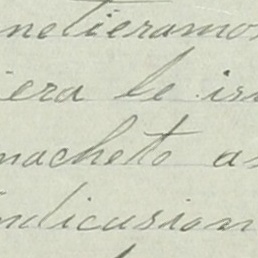 netieramos
iera le is
macheto as
indicasion